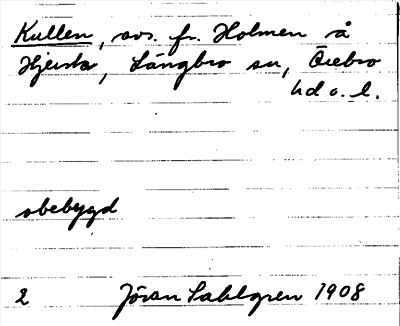 Kullen, avs. fr. Holmen å
Hjersta, Längbro sn, Örebro
hd o. l.
obebygd
2 Jöran Sahlgren 1908